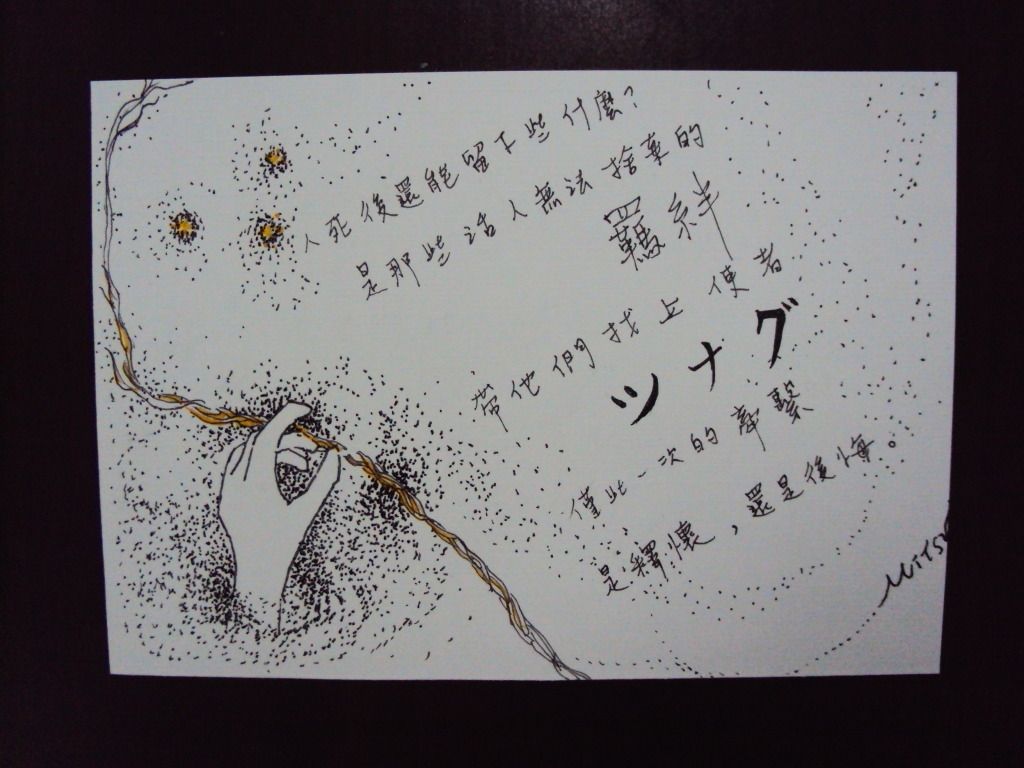 人死後還能留下些什麼？
是那些活人無法捨棄的
羈絆
帶他們找上使者
ツナグ
僅此一次的牽繫
是釋懷，還是後悔。
MITSU